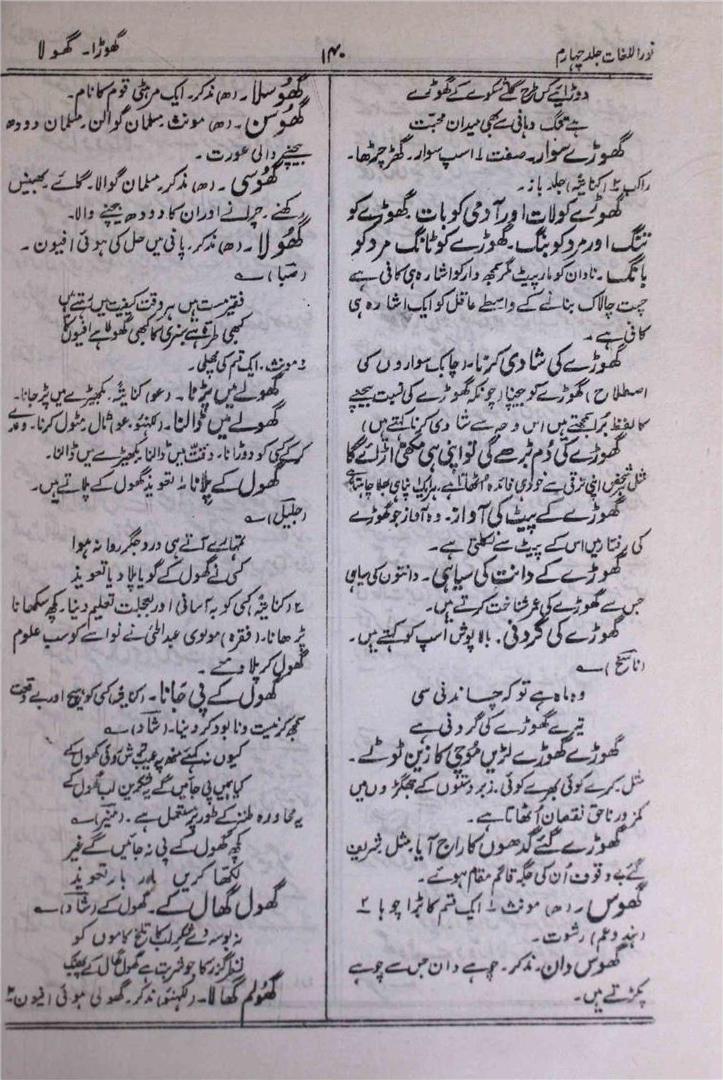 نور اللغات جلد چہارم
۱۴۰
گھوڑا۔ گھولا
دوڑائیے کس طرح گلے شکوے کے گھوڑے
ہے تنگ دہانی سے بھی میدان محبت
گھوڑے سوار۔ صفت ۱ اسپ سوار۔ گھڑ چڑھا۔
راکب ۲ (کنایتہً) جلد باز۔
گھوڑے کو لات اور آدمی کو بات۔ گھوڑے کو
تنگ اور مرد کو بنگ۔ گھوڑے کو ٹانگ مرد کو
بانگ۔ نادان کو مار پیٹ مگر سمجھ دار کو اشارہ ہی کافی ہے
چست چالاک بنانے کے واسطے عاقل کو ایک اشارہ ہی
کافی ہے۔
گھوڑے کی شادی کرنا۔ (چابک سواروں کی
اصطلاح) گھوڑے کو بیچنا (چونکہ گھوڑے کی نسبت بیچنے
کا لفظ بُرا سمجھتے ہیں اس وجہ سے شادی کرنا کہتے ہیں)
گھوڑے کی دُم بڑھے گی تو اپنی ہی مکھی اڑائے گا
مثل۔ شخص اپنی ترقی سے خود ہی فائدہ اٹھاتا ہے۔ ہر ایک اپنا ہی بھلا چاہتا ہے
گھوڑے کے پیٹ کی آواز۔ وہ آواز جو گھوڑے
کی رفتار میں اس کے پیٹ سے نکلتی ہے۔
گھوڑے کے دانت کی سیاہی۔ دانتوں کی سیاہی
جس سے گھوڑے کی عمر شناخت کرتے ہیں۔
گھوڑے کی گردنی۔ بالا پوش اسپ کو کہتے ہیں۔
(ناسخ) ؎
وہ ماہ ہے تو کہ چاندنی سی
تیرے گھوڑے کی گردنی ہے
گھوڑے گھوڑے لڑیں موچی کا زین ٹوٹے۔
مثل۔ کرے کوئی بھرے کوئی۔ زبردستوں کے جھگڑوں میں
کمزور ناحق نقصان اُٹھاتا ہے۔
گھوڑے گئے گدھوں کا راج آیا۔ مثل۔ شریف
گئے بے وقوف اُن کی جگہ قائم مقام ہوئے۔
گھوس۔ (ھ) مونث ۱ ایک قسم کا بڑا چوہا ۲
(ہندو عم) رشوت۔
گھوس دان۔ مذکر۔ چوہے دان جس سے چوہے
پکڑتے ہیں۔
گھُوسلا۔ (ھ) مذکر۔ ایک مرہٹی قوم کا نام۔
گھُوسَن۔ (ھ) مونث۔ مسلمان گوالن۔ مسلمان دودھ
بیچنے والی عورت۔
گھُوسی۔ (ھ) مذکر۔ مسلمان گوالا۔ گائے بھینس
رکھنے۔ چرانے اور ان کا دودھ بیچنے والا۔
گھُولا۔ (ھ) مذکر۔ پانی میں حل کی ہوئی افیون۔
(صبا) ؎
فقیر مست ہیں ہر وقت کیفیت میں رہتے ہیں
کبھی طرہ ہے سبزی کا کبھی گھولا ہے افیوں کا
۲ مونث۔ ایک قسم کی مچھلی۔
گھولے میں پڑنا۔ (عو) کنایتہً۔ بکھیڑے میں پڑ جانا۔
گھولے میں ڈالنا۔ (لکھنؤ۔ عو) ٹال مٹول کرنا۔ وعدے
کر کے کسی کو دوڑانا۔ دقت میں ڈالنا۔ بکھیڑے میں ڈالنا۔
گھول کے پلانا ۱ تعویذ گھول کے پلاتے ہیں۔
(جلیل) ؎
تمہارے آتے ہی درد جگر روانہ ہوا
کسی نے گھول کے گویا پلا دیا تعویذ
۲ (کنایتہً) کسی کو بہ آسانی اور بعجلت تعلیم دینا۔ کچھ سکھانا
پڑھانا۔ (فقرہ) مولوی عبدالحئی نے نواسے کو سب علوم
گھول کر پلا دئے۔
گھول کے پی جانا۔ (کنایتہً) کسی کو ہیچ اور بے وقعت
سمجھ کر نیست و نابود کر دینا۔ (شاد) ؎
کیوں نہ کہئے منھ پر عیب ترش روئی کھول کے
کیا ہمیں پی جائیں گے شیریں لب گھول کے
یہ محاورہ طنز کے طور پر مستعمل ہے۔ (منیر) ؎
کچھ گھول کے پی نہ جائیں گے غیر
لکھا کریں اور بار تعویذ
گھول گھال کے۔ گھول کے (شاد) ؎
نہ بوسہ دے شکر لب تلخ کاموں کو
گھولم گھالا۔ (لکھنؤ) مذکر۔ گھولی ہوئی افیون ۲